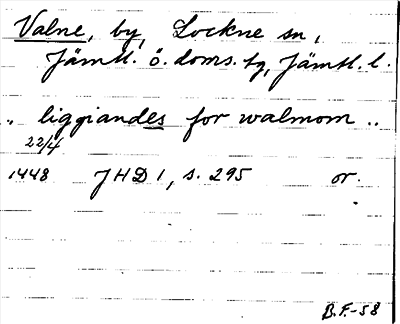 Valne, by, Lockne sn,
Jämtl. ö. doms. tg, Jämtl. l.
„ liggiandes for walmom ..
22/4
1448 JHD 1, s. 295 or.
B.F.-58